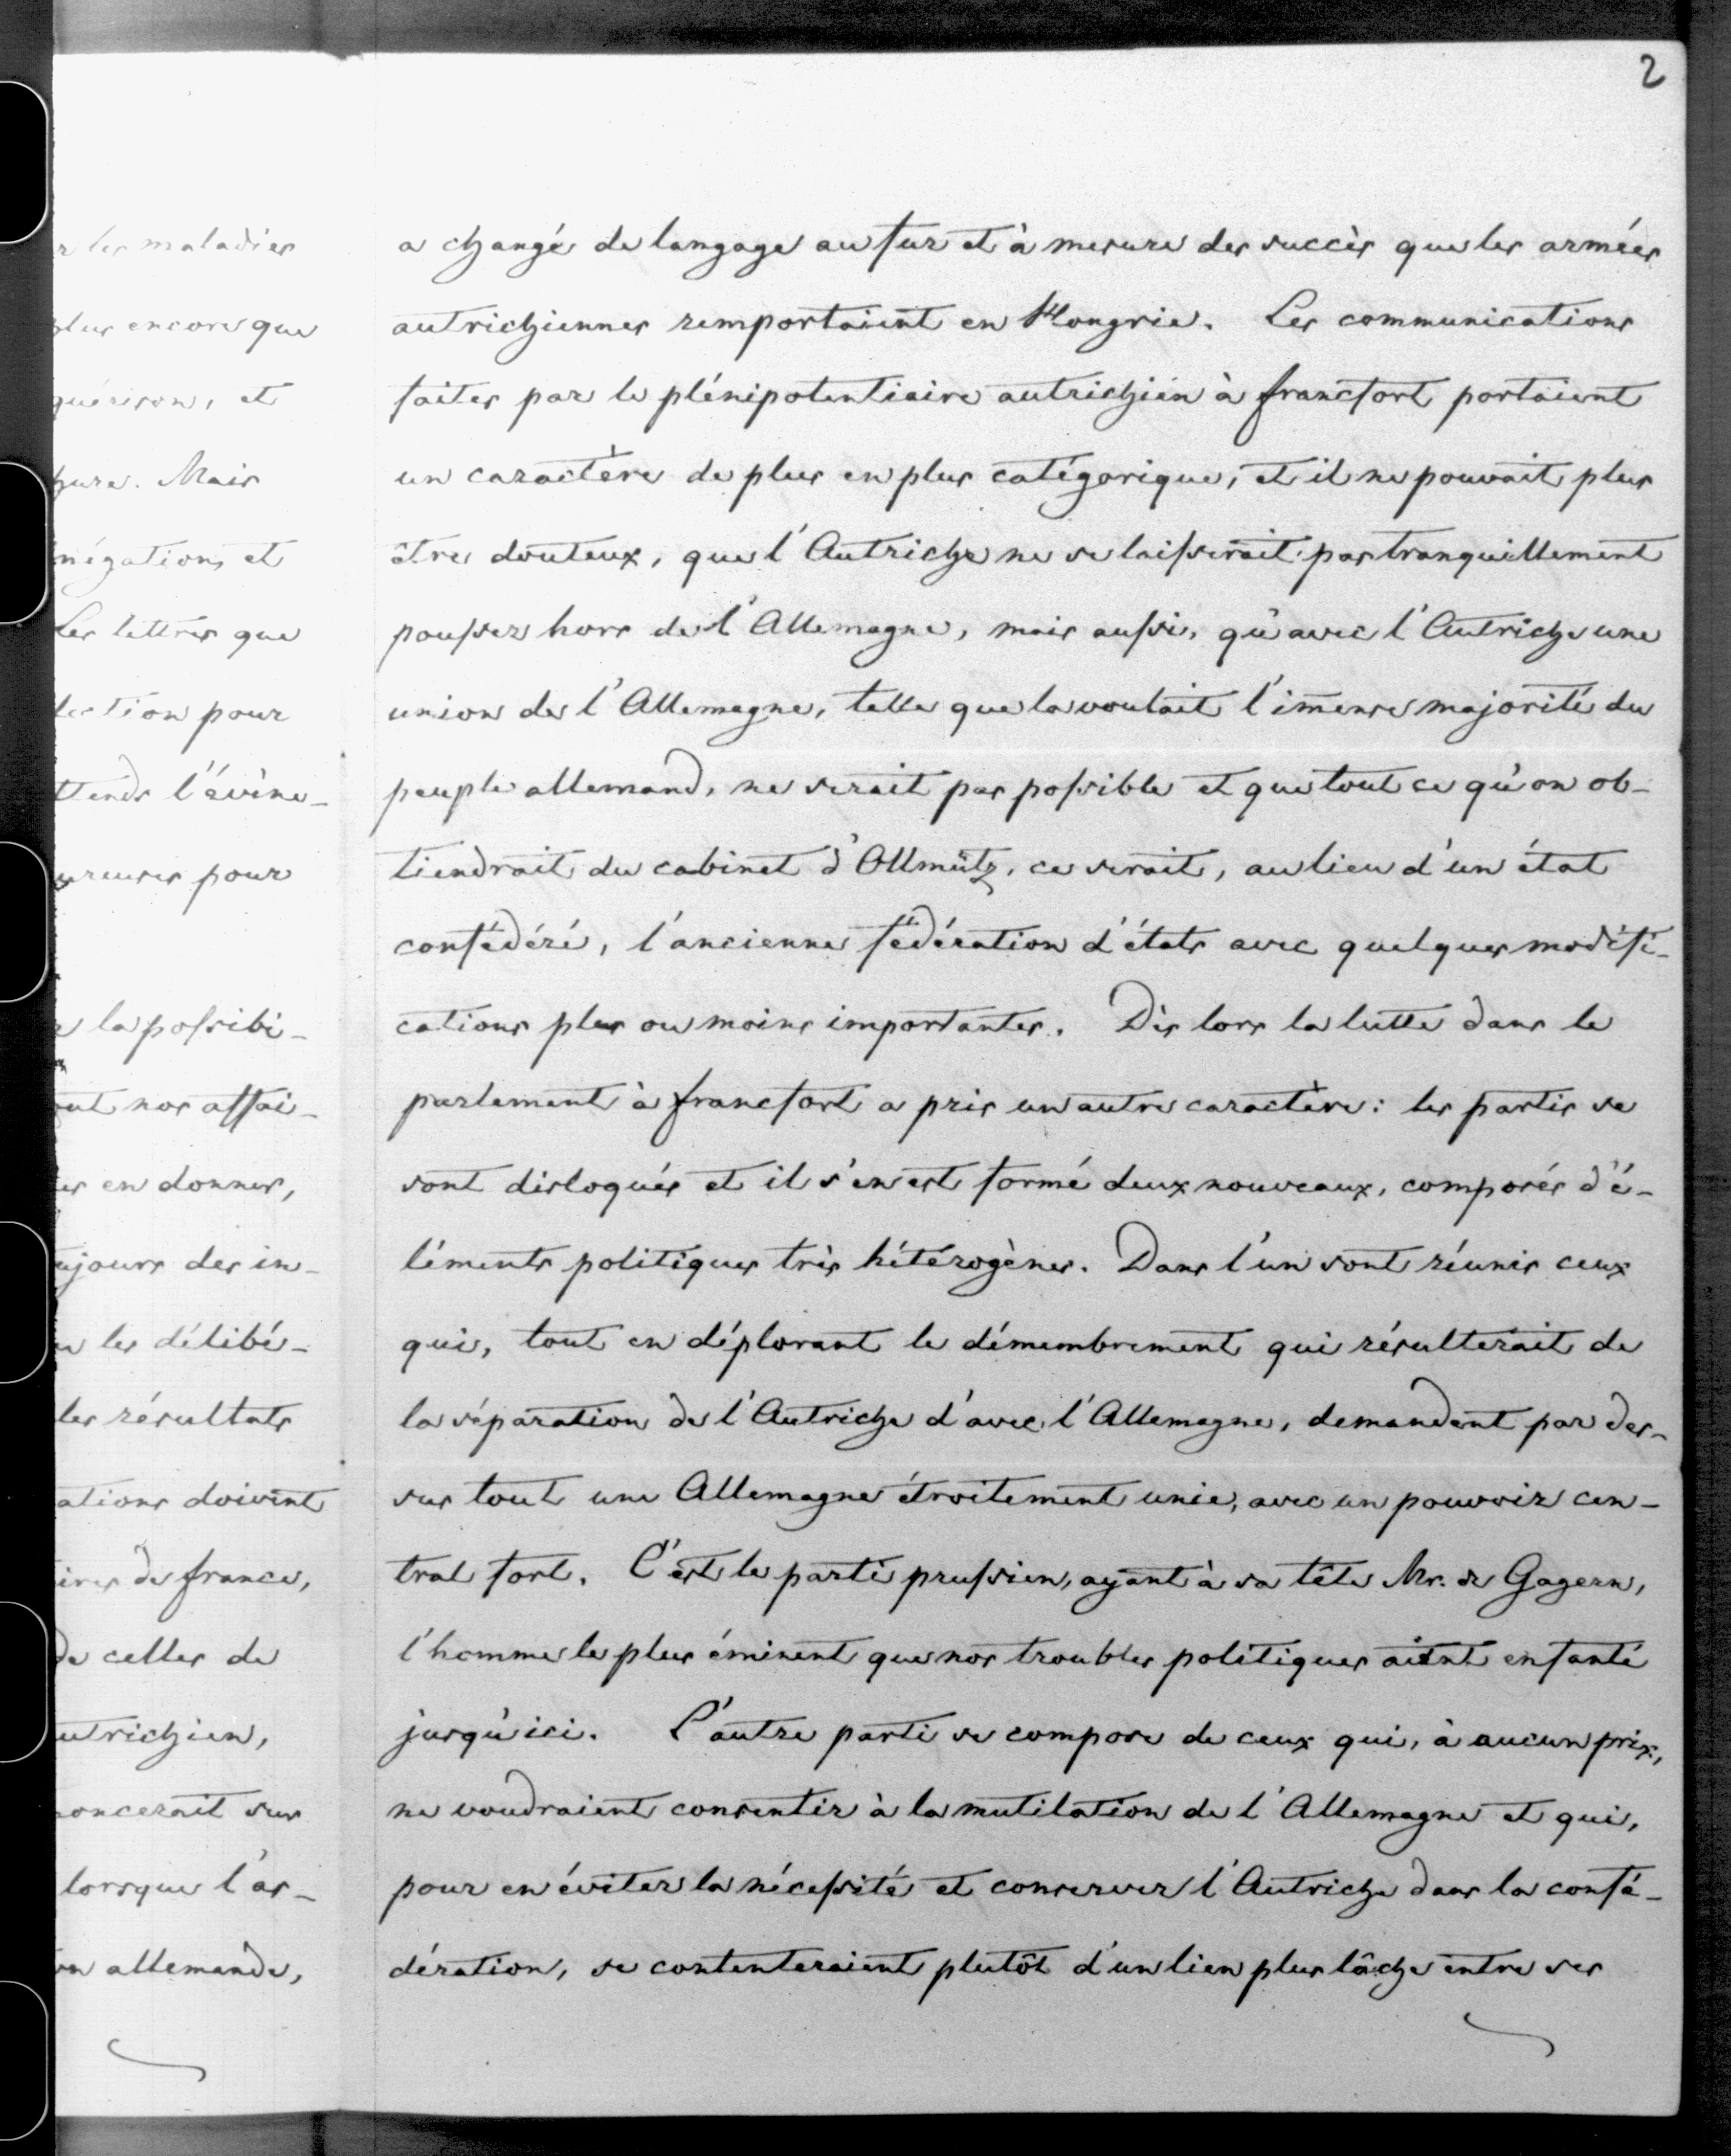 2
r les maladies
plus encore que
guérison, et
hure. Mais
négation, et
Les lettres que
lection pour
ttends l'évène-
ureuses pour
e la possibi-
out nos affai-
es en donner,
ujours des in-
les délibé-
les résultats
ations doivent
ires de france,
de celles de
utrichien,
noncerait sur
lorsque l'as-
on allemande,
a changé de langage au fur et à mesure des succès que les armées
autrichiennes remportaient en Hongrie. Les communications
faites par le plénipotentiaire autrichien à francfort portaient
un caractère de plus en plus catégorique, et il ne pouvait plus
être douteux, que l'Autriche ne se laisserait pas tranquillement
pousser hors de l'Allemagne, mais aussi, qu'avec l'Autriche une
union de l'Allemagne, telle que la voulait l'imense majorité du
peuple allemand, ne serait pas possible et que tout ce qu'on ob-
tiendrait du cabinet d'Ollmütz, ce serait, au lieu d'un état
confédéré, l'ancienne fédération d'états avec quelques modifi-
cations plus ou moins importantes. Dès lors la lutte dans le
parlement à francfort a pris un autre caractère: les partis se
sont disloqués et il s'en est formé deux nouveaux, composés d'é-
léments politiques très hétérogènes. Dans l'un sont réunis ceux
qui, tout en déplorant le démembrement qui résulterait de
la séparation de l'Autriche d'avec l'Allemagne, demandent par des-
sus tout une Allemagne étroitement unie, avec un pouvoir cen-
tral fort. C'est le parti prussien, ayant à sa tête Mr. de Gagern,
l'homme le plus éminent que nos troubles politiques aient enfanté
jusqu'ici. L'autre parti se compose de ceux qui, à aucun prix,
ne voudraient consentir à la mutilation de l'Allemagne et qui,
pour en éviter la nécessité et conserver l'Autriche dans la confé-
dération, se contenteraient plutôt d'un lien plus lâche entre ses